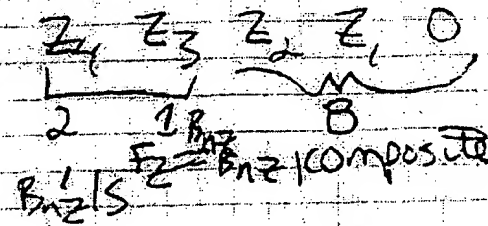 Z₄ Z₃ Z₂ Z₁ 0
2 1 B
F_Z = B_nz/B_nz, composite
B_nz's